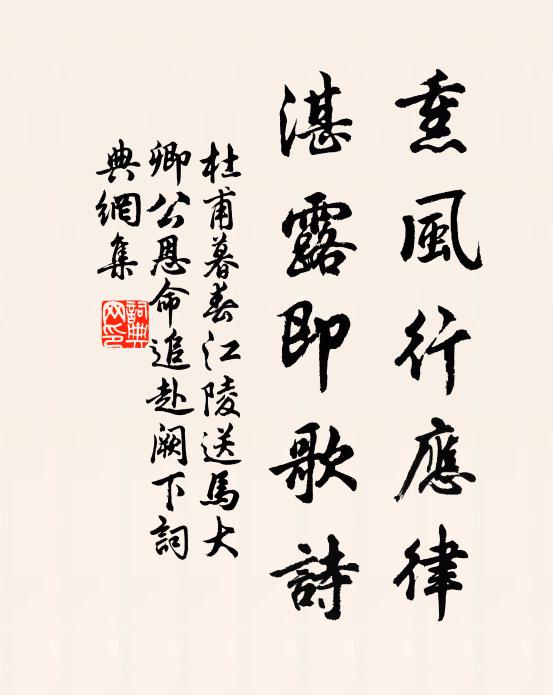 熏風行應律
湛露即歌詩
杜甫暮春江陵送馬大
卿公恩命追赴闕下詞
典網集
詞典
网印